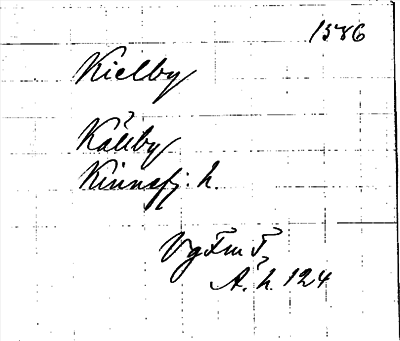 1586
Kielby
?
Källby
Kinnefj. h.
VgFmT,
A. h. 124